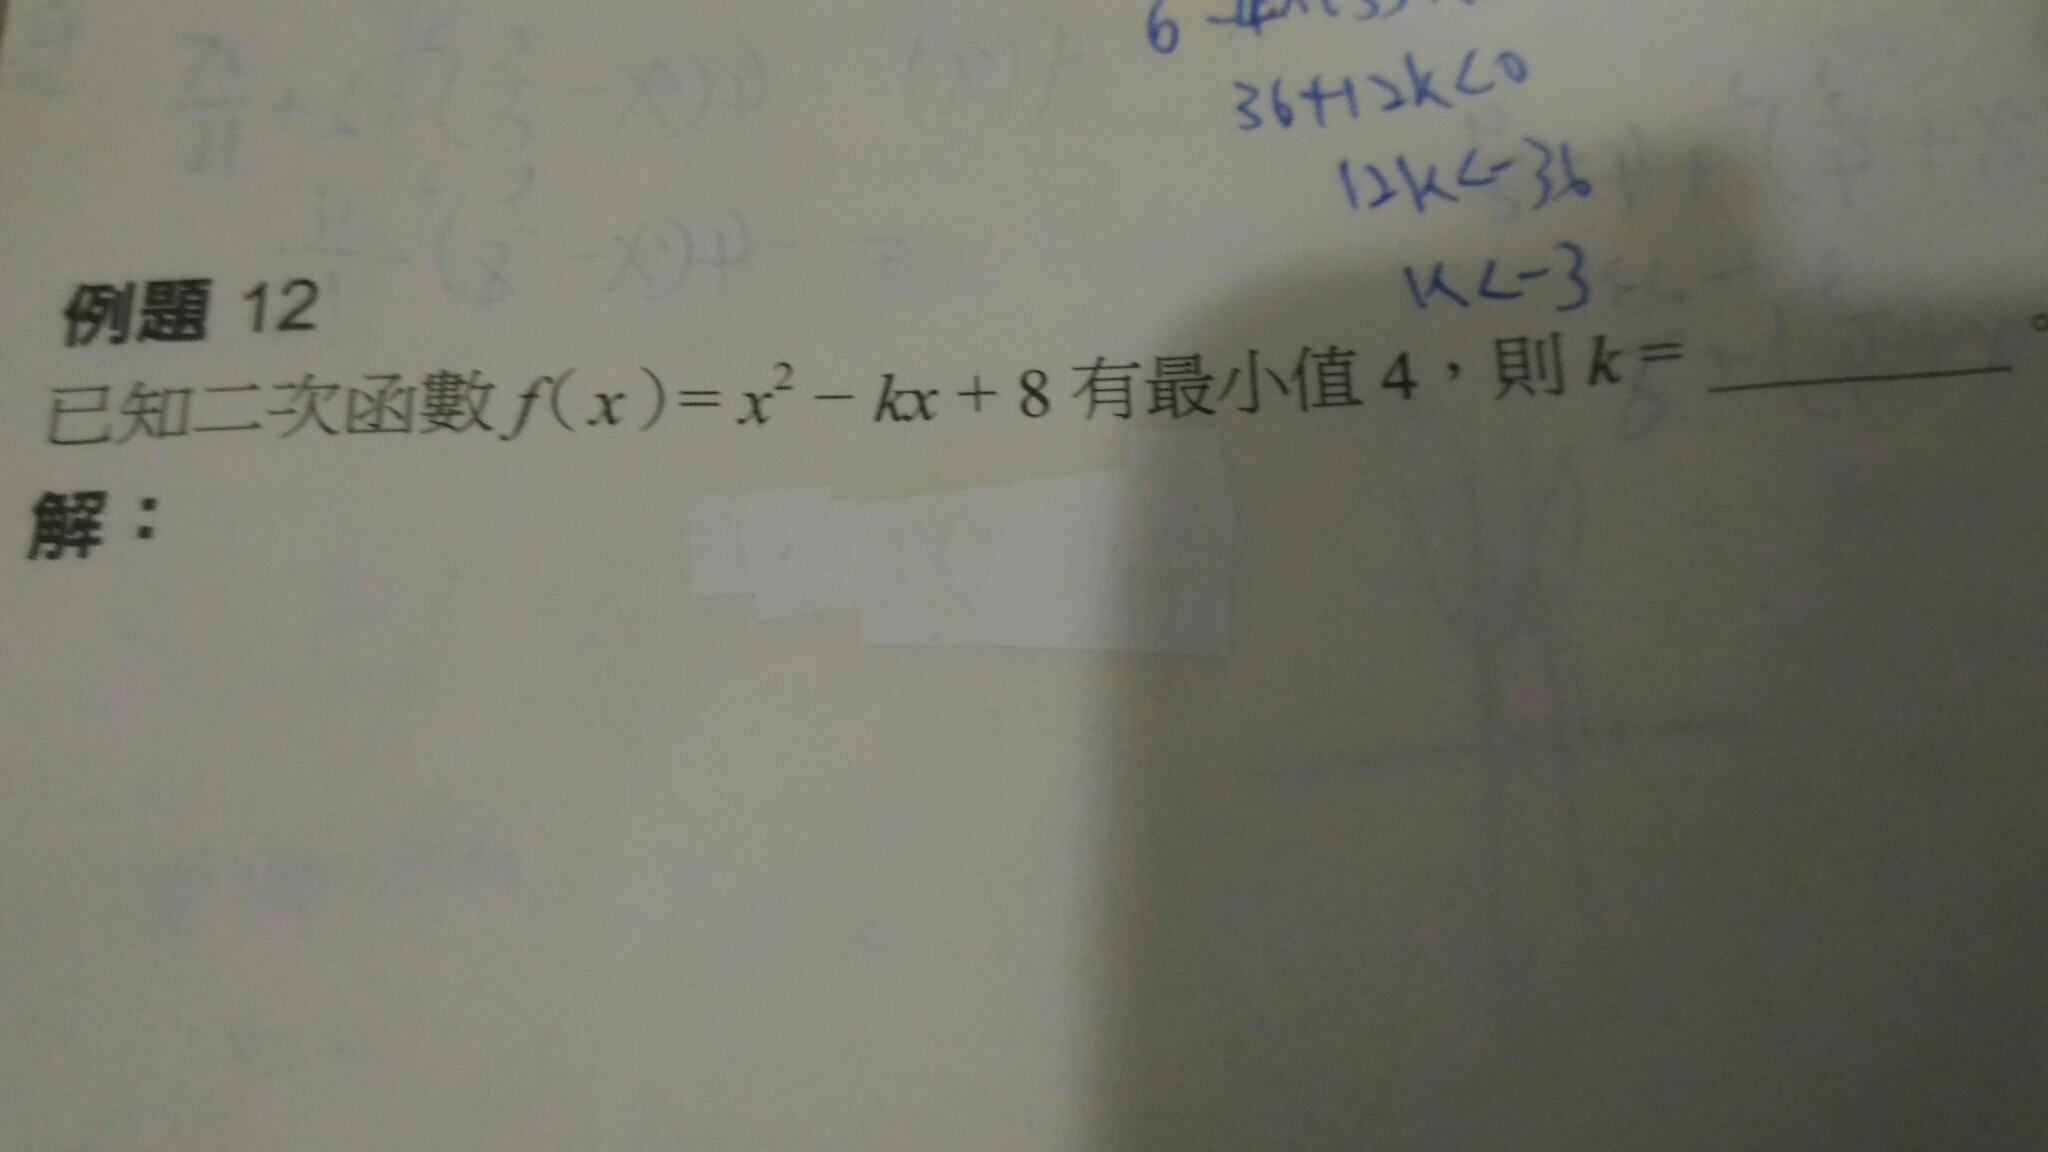 36+12k<0
12k<-36
k<-3
例題 12
已知二次函數 f(x)=x²－kx＋8 有最小值 4，則 k= ＿＿＿＿＿。
解：